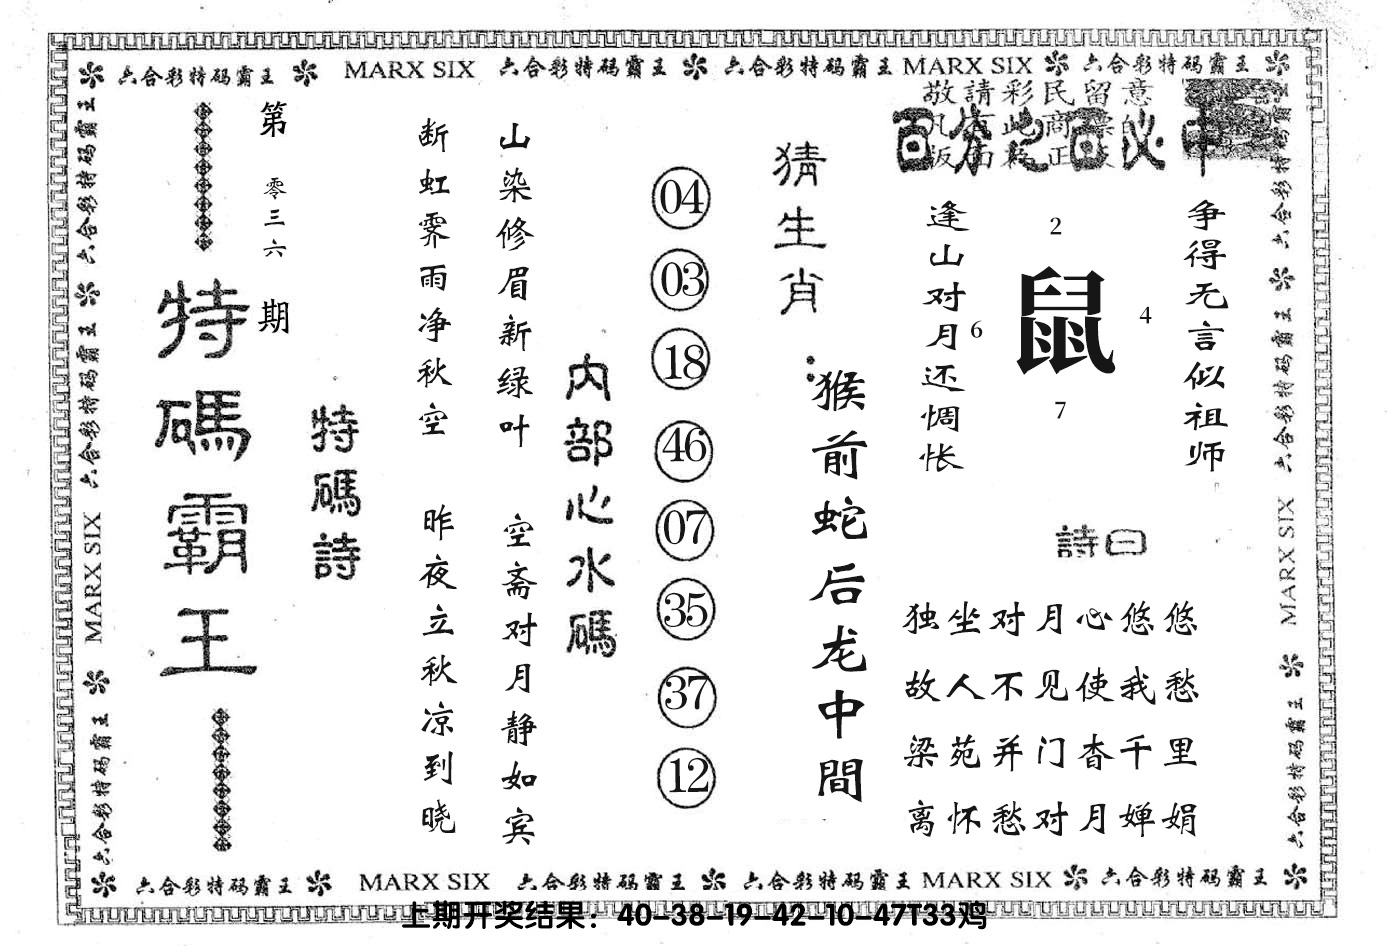 六合彩特码霸王 MARX SIX 六合彩特码霸王 六合彩特码霸王 MARX SIX 六合彩特码霸王
敬請彩民留意
百分之百必中
争得无言似祖师
逢山对月还惆怅
2
鼠
6
4
7
詩曰
独坐对月心悠悠
故人不见使我愁
梁苑并门杳千里
离怀愁对月婵娟
猜生肖:
猴前蛇后龙中間
04
03
18
46
07
35
37
12
内部心水碼
山染修眉新绿叶 空斋对月静如宾
断虹霁雨净秋空 昨夜立秋凉到晓
特碼詩
第零三六期
特碼霸王
六合彩特码霸王 六合彩特码霸王 MARX SIX 六合彩特码霸王
六合彩特码霸王 六合彩特码霸王 MARX SIX 六合彩特码霸王
六合彩特码霸王 MARX SIX 六合彩特码霸王 六合彩特码霸王 MARX SIX 六合彩特码霸王
上期开奖结果：40-38-19-42-10-47T33鸡